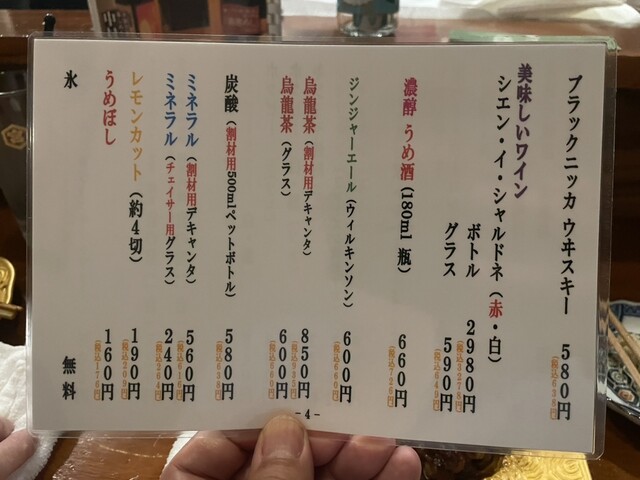 ブラックニッカ ウヰスキー 580円
(税込638円)
美味しいワイン
シエン・イ・シャルドネ(赤・白)
ボトル 2980円
(税込3278円)
グラス 500円
(税込549円)
濃醇 うめ酒(180ml 瓶) 660円
(税込726円)
ジンジャーエール(ウィルキンソン) 600円
(税込660円)
烏龍茶(割材用デキャンタ) 850円
烏龍茶(グラス) 600円
(税込660円)
炭酸(割材用500mlペットボトル) 580円
(税込638円)
ミネラル(割材用デキャンタ) 560円
(税込616円)
ミネラル(チェイサー用グラス) 240円
(税込264円)
レモンカット(約4切) 190円
(税込209円)
うめぼし 160円
(税込176円)
氷 無料
-4-